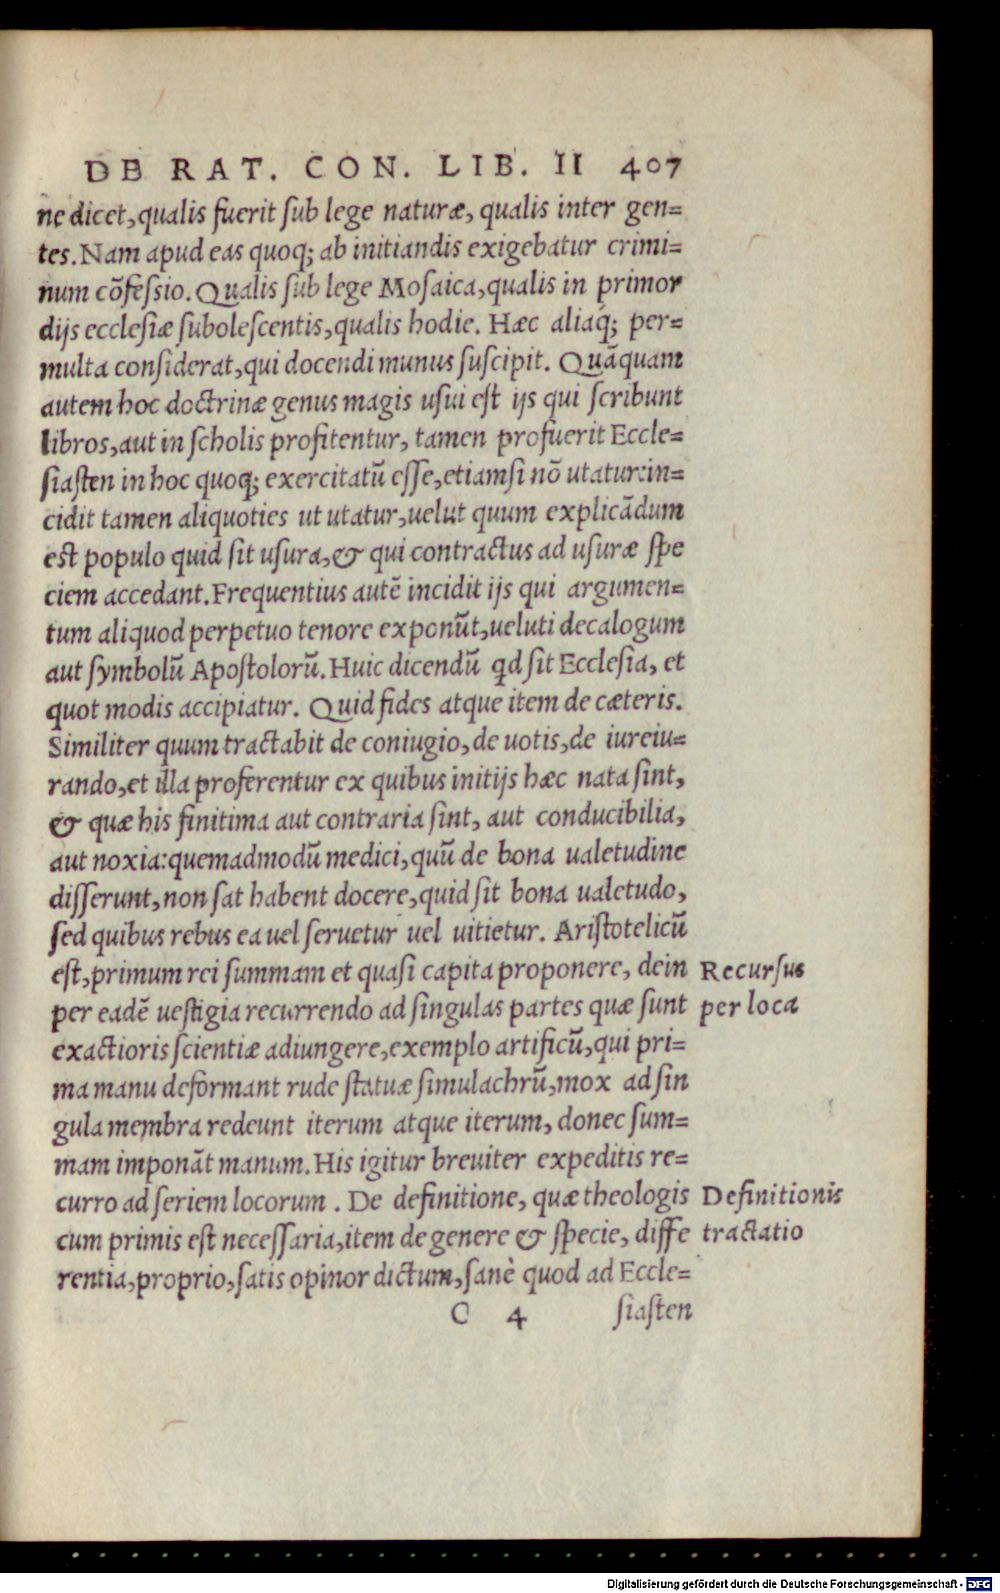 DE RAT. CON. LIB. II 407
ne dicet, qualis fuerit sub lege naturæ, qualis inter gen=
tes. Nam apud eas quoq; ab initiandis exigebatur crimi=
num cōfessio. Qualis sub lege Mosaica, qualis in primor
dijs ecclesiæ subolescentis, qualis hodie. Hæc aliaq́; per=
multa considerat, qui docendi munus suscipit. Quāquam
autem hoc doctrinæ genus magis usui est ijs qui scribunt
libros, aut in scholis profitentur, tamen profuerit Eccle=
siasten in hoc quoq; exercitatū esse, etiamsi nō utatur: in=
cidit tamen aliquoties ut utatur, uelut quum explicādum
est populo quid sit usura, & qui contractus ad usuræ spe
ciem accedant. Frequentius autē incidit ijs qui argumen=
tum aliquod perpetuo tenore exponūt, ueluti decalogum
aut symbolū Apostolorū. Huic dicendū qd sit Ecclesia, et
quot modis accipiatur. Quid fides atque item de cæteris.
Similiter quum tractabit de coniugio, de uotis, de iureiu=
rando, et illa proferentur ex quibus initijs hæc nata sint,
& quæ his finitima aut contraria sint, aut conducibilia,
aut noxia: quemadmodū medici, quū de bona ualetudine
disserunt, non sat habent docere, quid sit bona ualetudo,
sed quibus rebus ea uel seruetur uel uitietur. Aristotelicū
est, primum rei summam et quasi capita proponere, dein
per eadē uestigia recurrendo ad singulas partes quæ sunt
exactioris scientiæ adiungere, exemplo artificū, qui pri=
ma manu deformant rude statuæ simulachrū, mox ad sin
gula membra redeunt iterum atque iterum, donec sum=
mam imponāt manum. His igitur breuiter expeditis re=
curro ad seriem locorum. De definitione, quæ theologis
cum primis est necessaria, item de genere & specie, diffe
rentia, proprio, satis opinor dictum, sanè quod ad Eccle=
C 4 siasten
Recursus
per loca
Definitionis
tractatio
Digitalisierung gefördert durch die Deutsche Forschungsgemeinschaft - DFG